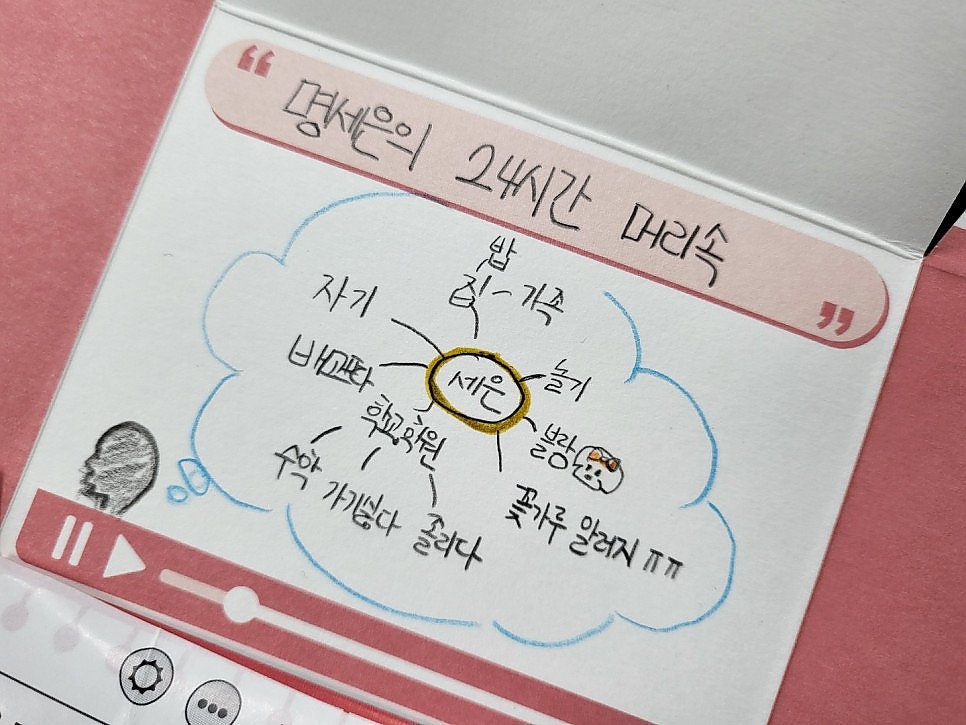 명세은의 24시간 머리속
밥
집 - 가족
자기
세은
놀기
배고프다
블랑
학교, 학원
수학
가기싫다
졸리다
꽃가루 알러지 ㅠㅠ